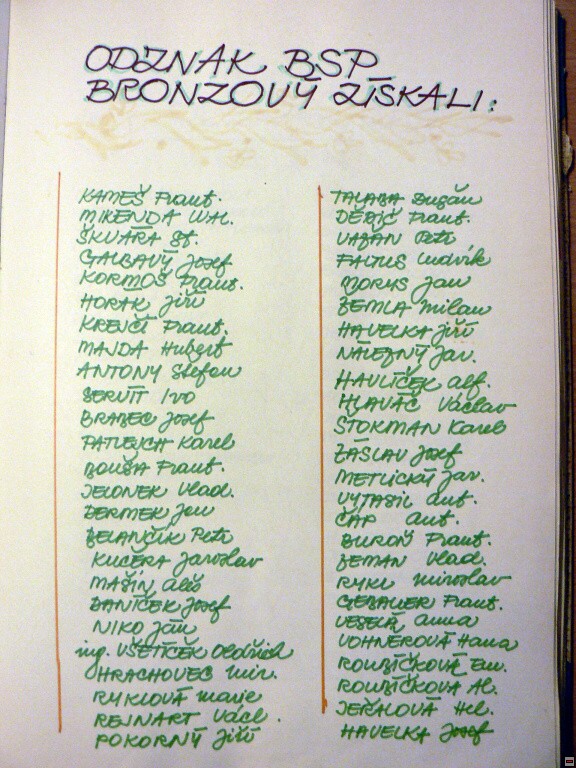 ODZNAK BSP
BRONZOVÝ ZÍSKALI:
KAMEŠ Frant.
MIKENDA Wal.
ŠKVÁŘA St.
GALBAVÝ Josef
KORMOŠ Frant.
HORAK Jiří
KREJČÍ Frant.
MAJDA Hubert
ANTONY Stefan
SERVÍT Ivo
BRABEC Josef
PATLEJCH Karel
BOUŠA Frant.
JELONEK Vlad.
DERMEK Jan
BELANČÍK Petr
KUČERA Jaroslav
MAŠIN Aleš
DANÍČEK Josef
NIKO Ján
ing. VŠETÍČEK Oldřich
HRACHOVEC Mir.
RYKLOVÁ Marie
REJNART Václ.
POKORNÝ Jiří
TALABA Dušan
Frant.
Petr
FALTUS Ludvík
BORYS Jan
ZEMLA Milan
HAVELKA Jiří
Jar.
HAVLÍČEK Alf.
HLAVÁČ Václav
STOKMAN Karel
ZÁSLAV Josef
METLICKÝ Jar.
VYTASIL Ant.
ČÁP Ant.
BUROŇ Frant.
ZEMAN Vlad.
RYKL Miroslav
GEBAUER Frant.
VESELÁ Anna
VOHNEROVÁ Hana
ROUBÍČKOVÁ Em.
ROUBÍČKOVA Al.
JEŘALOVÁ Hel.
HAVELKA Josef